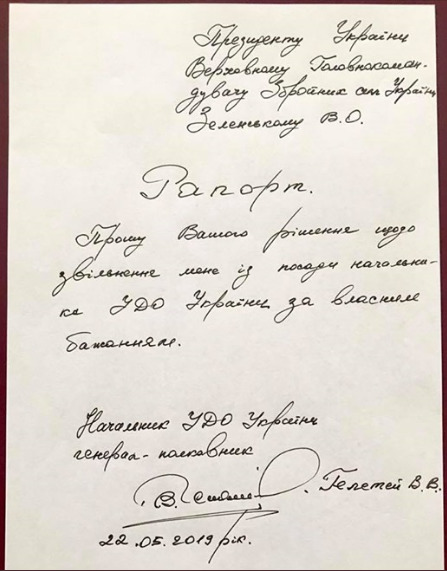 Президенту України
Верховному Головнокоман-
дувачу Збройних сил України
Зеленському В.О.
Рапорт.
Прошу Вашого рішення щодо
звільнення мене із посади начальни-
ка УДО України за власним
бажанням.
Начальник УДО України
генерал-полковник
Гелетей В.В.
22.05.2019 рік.